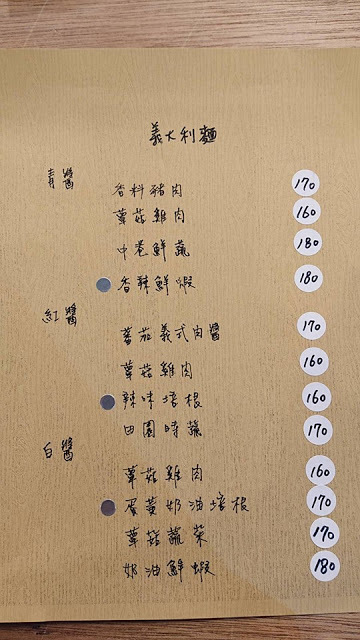 義大利麵
青醬
香料豬肉 170
蕈菇雞肉 160
中卷鮮蔬 180
香辣鮮蝦 180
紅醬
蕃茄義式肉醬 170
蕈菇雞肉 160
辣味培根 160
田園時蔬 170
白醬
蕈菇雞肉 160
蛋黃奶油培根 170
蕈菇蔬菜 170
奶油鮮蝦 180